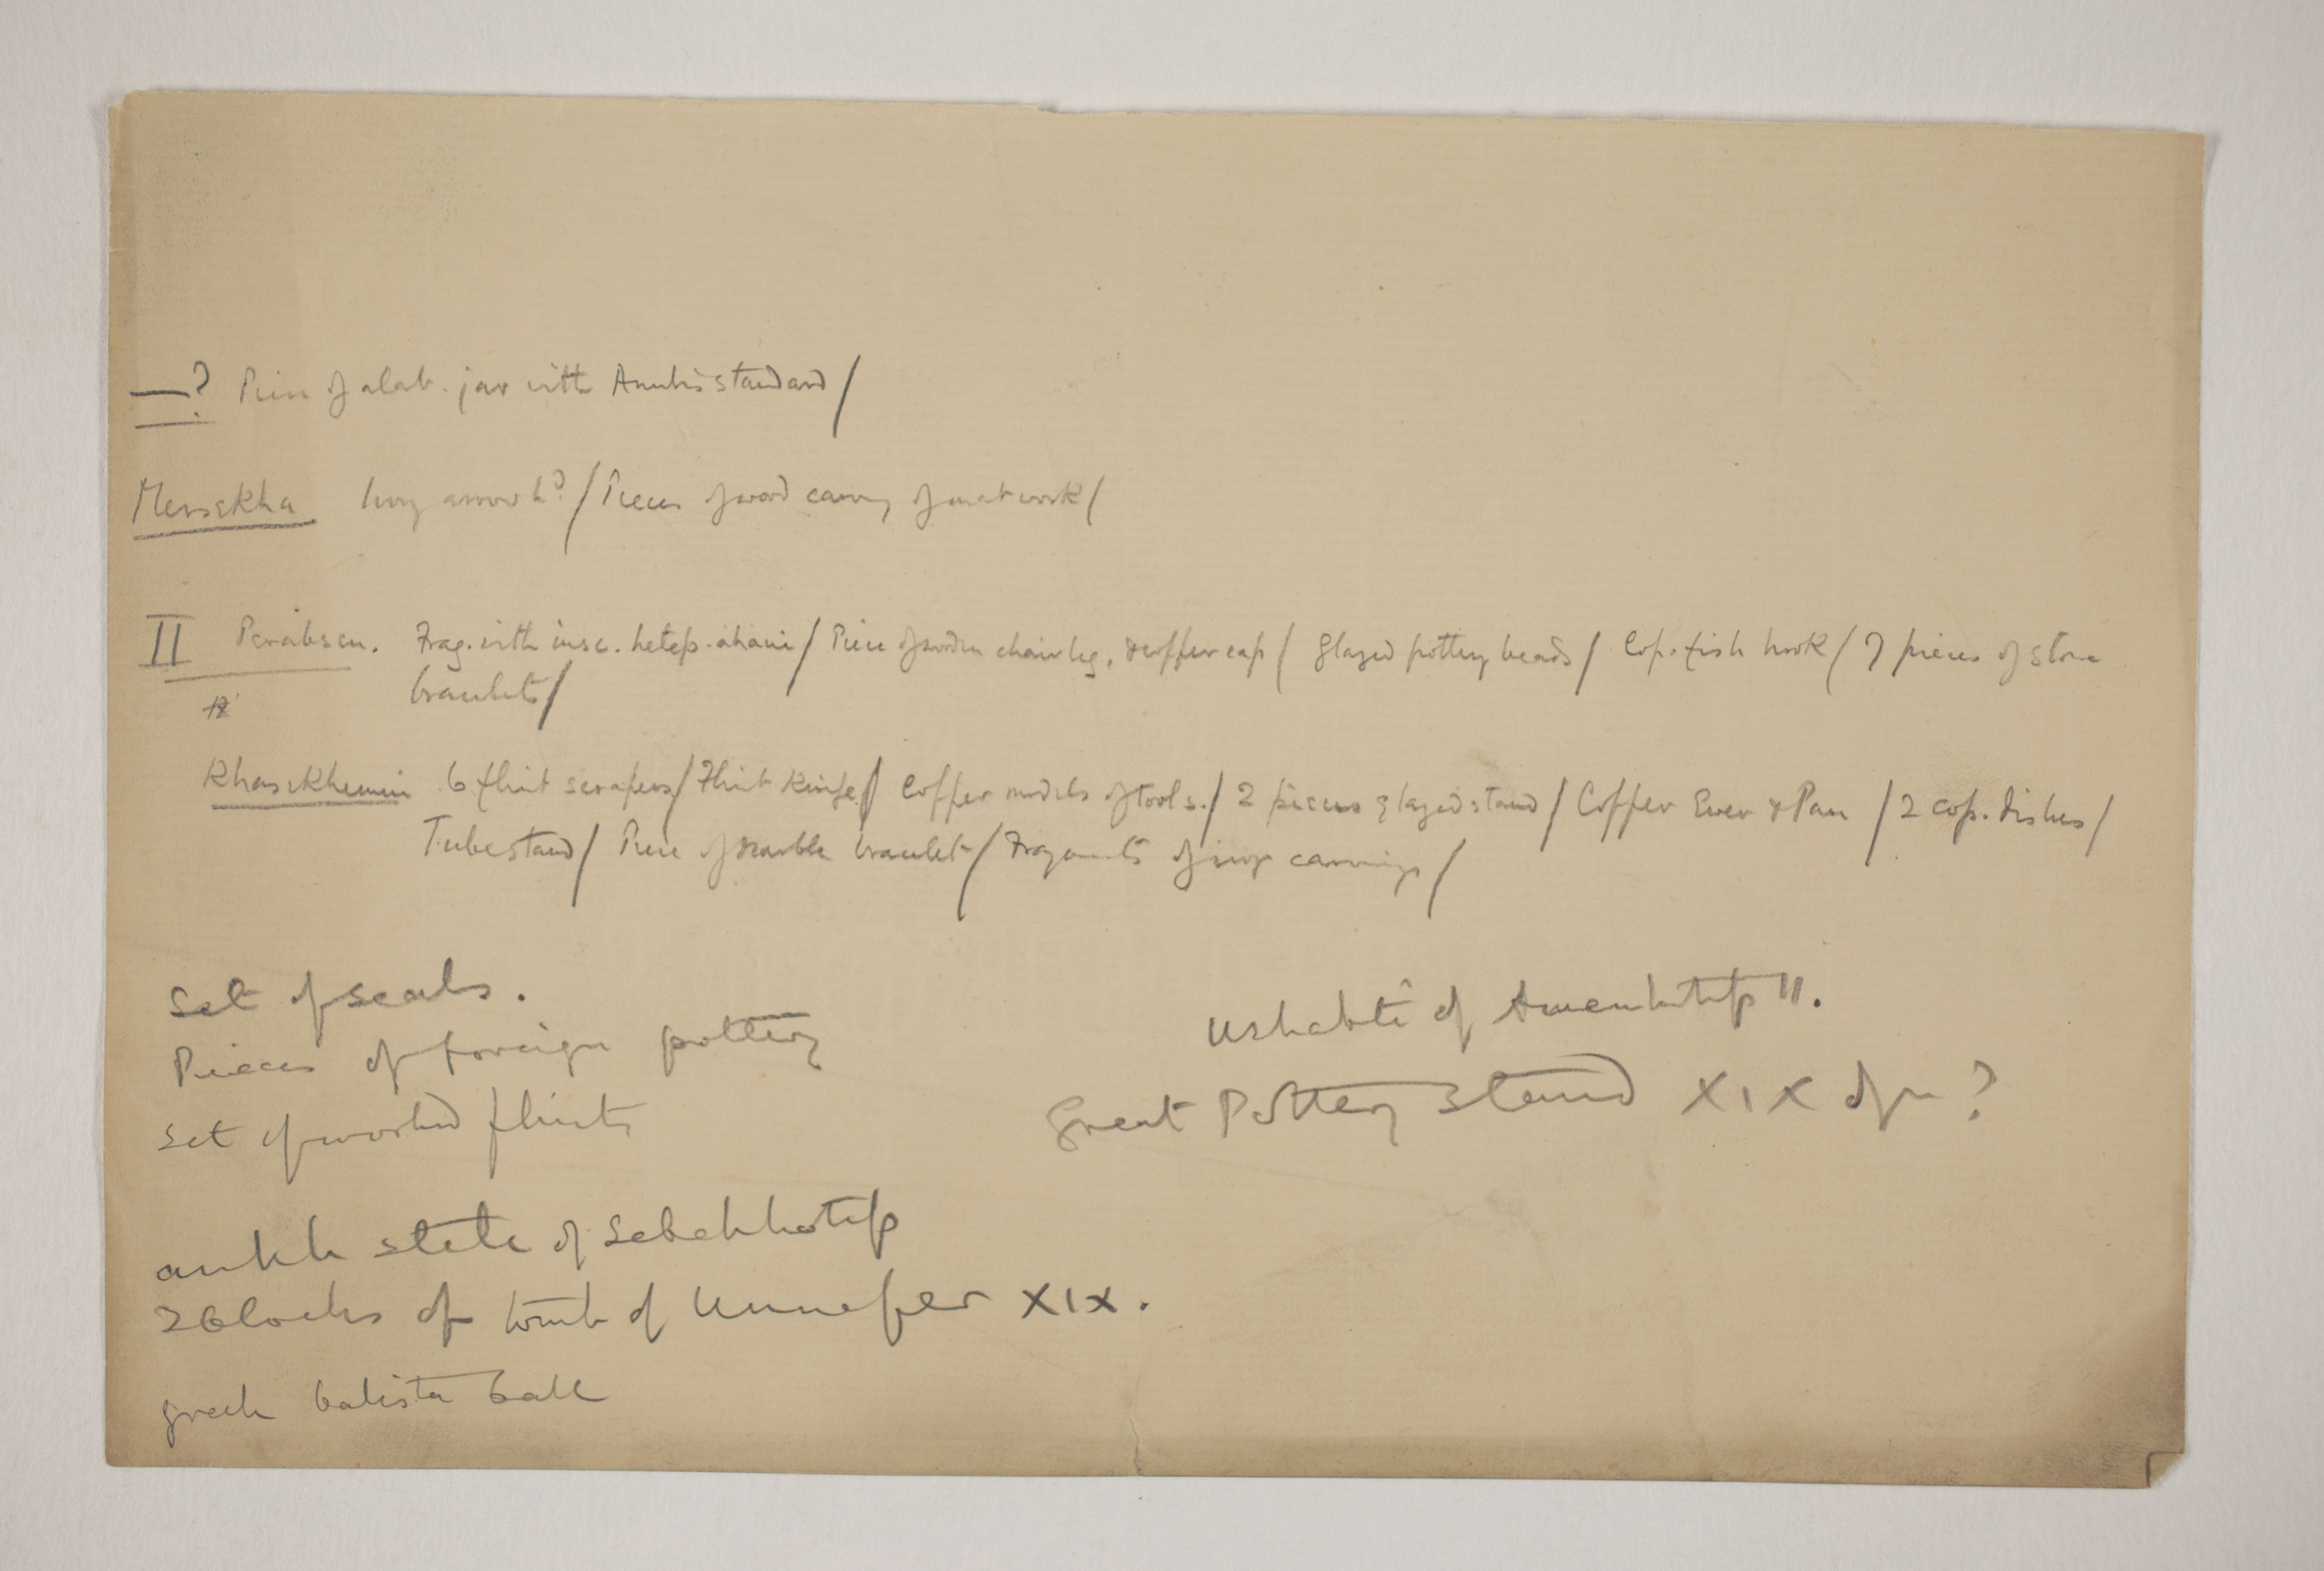 —? Piece of alab. jar with Anubis standard/
Mersekha Ivory arrow h?/ Pieces of wood carving of mat work/
II Perabsen. Frag. with insc. hetep. ahaui/ Piece of wooden chair leg, & copper cap/ Glazed pottery beads/ Cop. fish hook/ 7 pieces of stone
bracelets/
Khasekhemui 6 flint scrapers/ Flint Knife/ Copper models of tools./ 2 pieces glazed stand/ Copper Ewer & Pan / 2 cop. dishes/
Tube stand/ Piece of marble bracelet/ Fragments of ivory carvings/
Set of seals.
Pieces of foreign pottery
Set of worked flints
Ushabti of Amenhotep II.
Great Pottery Stand XIX dyn?
ankh stele of Sebekhotep
2 blocks of tomb of Unnefer XIX.
greek balista ball